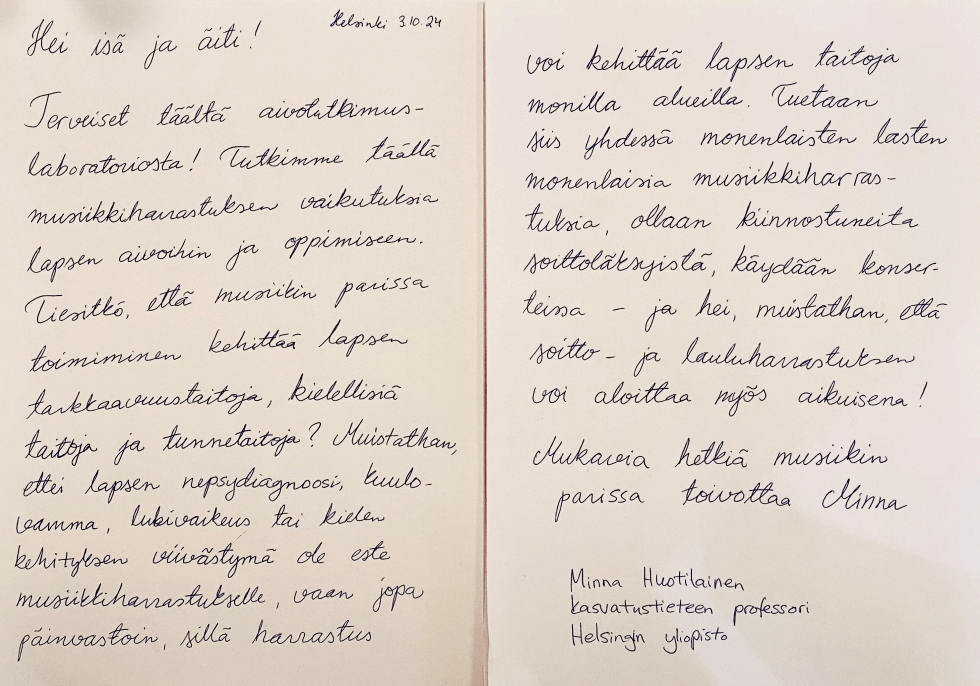 Helsinki 3.10.24
Hei isä ja äiti!
Terveiset täältä aivotutkimus-
laboratoriosta! Tutkimme täällä
musiikkiharrastuksen vaikutuksia
lapsen aivoihin ja oppimiseen.
Tiesitkö, että musiikin parissa
toimiminen kehittää lapsen
tarkkaavuustaitoja, kielellisiä
taitoja ja tunnetaitoja? Muistathan,
ettei lapsen nepsydiagnoosi, kuulo-
vamma, lukivaikeus tai kielen
kehityksen viivästymä ole este
musiikkiharrastukselle, vaan jopa
päinvastoin, sillä harrastus
voi kehittää lapsen taitoja
monilla alueilla. Tuetaan
siis yhdessä monenlaisten lasten
monenlaisia musiikkiharras-
tuksia, ollaan kiinnostuneita
soittoläksyistä, käydään konser-
teissa – ja hei, muistathan, että
soitto- ja lauluharrastuksen
voi aloittaa myös aikuisena!
Mukavia hetkiä musiikin
parissa toivottaa Minna
Minna Huotilainen
kasvatustieteen professori
Helsingin yliopisto